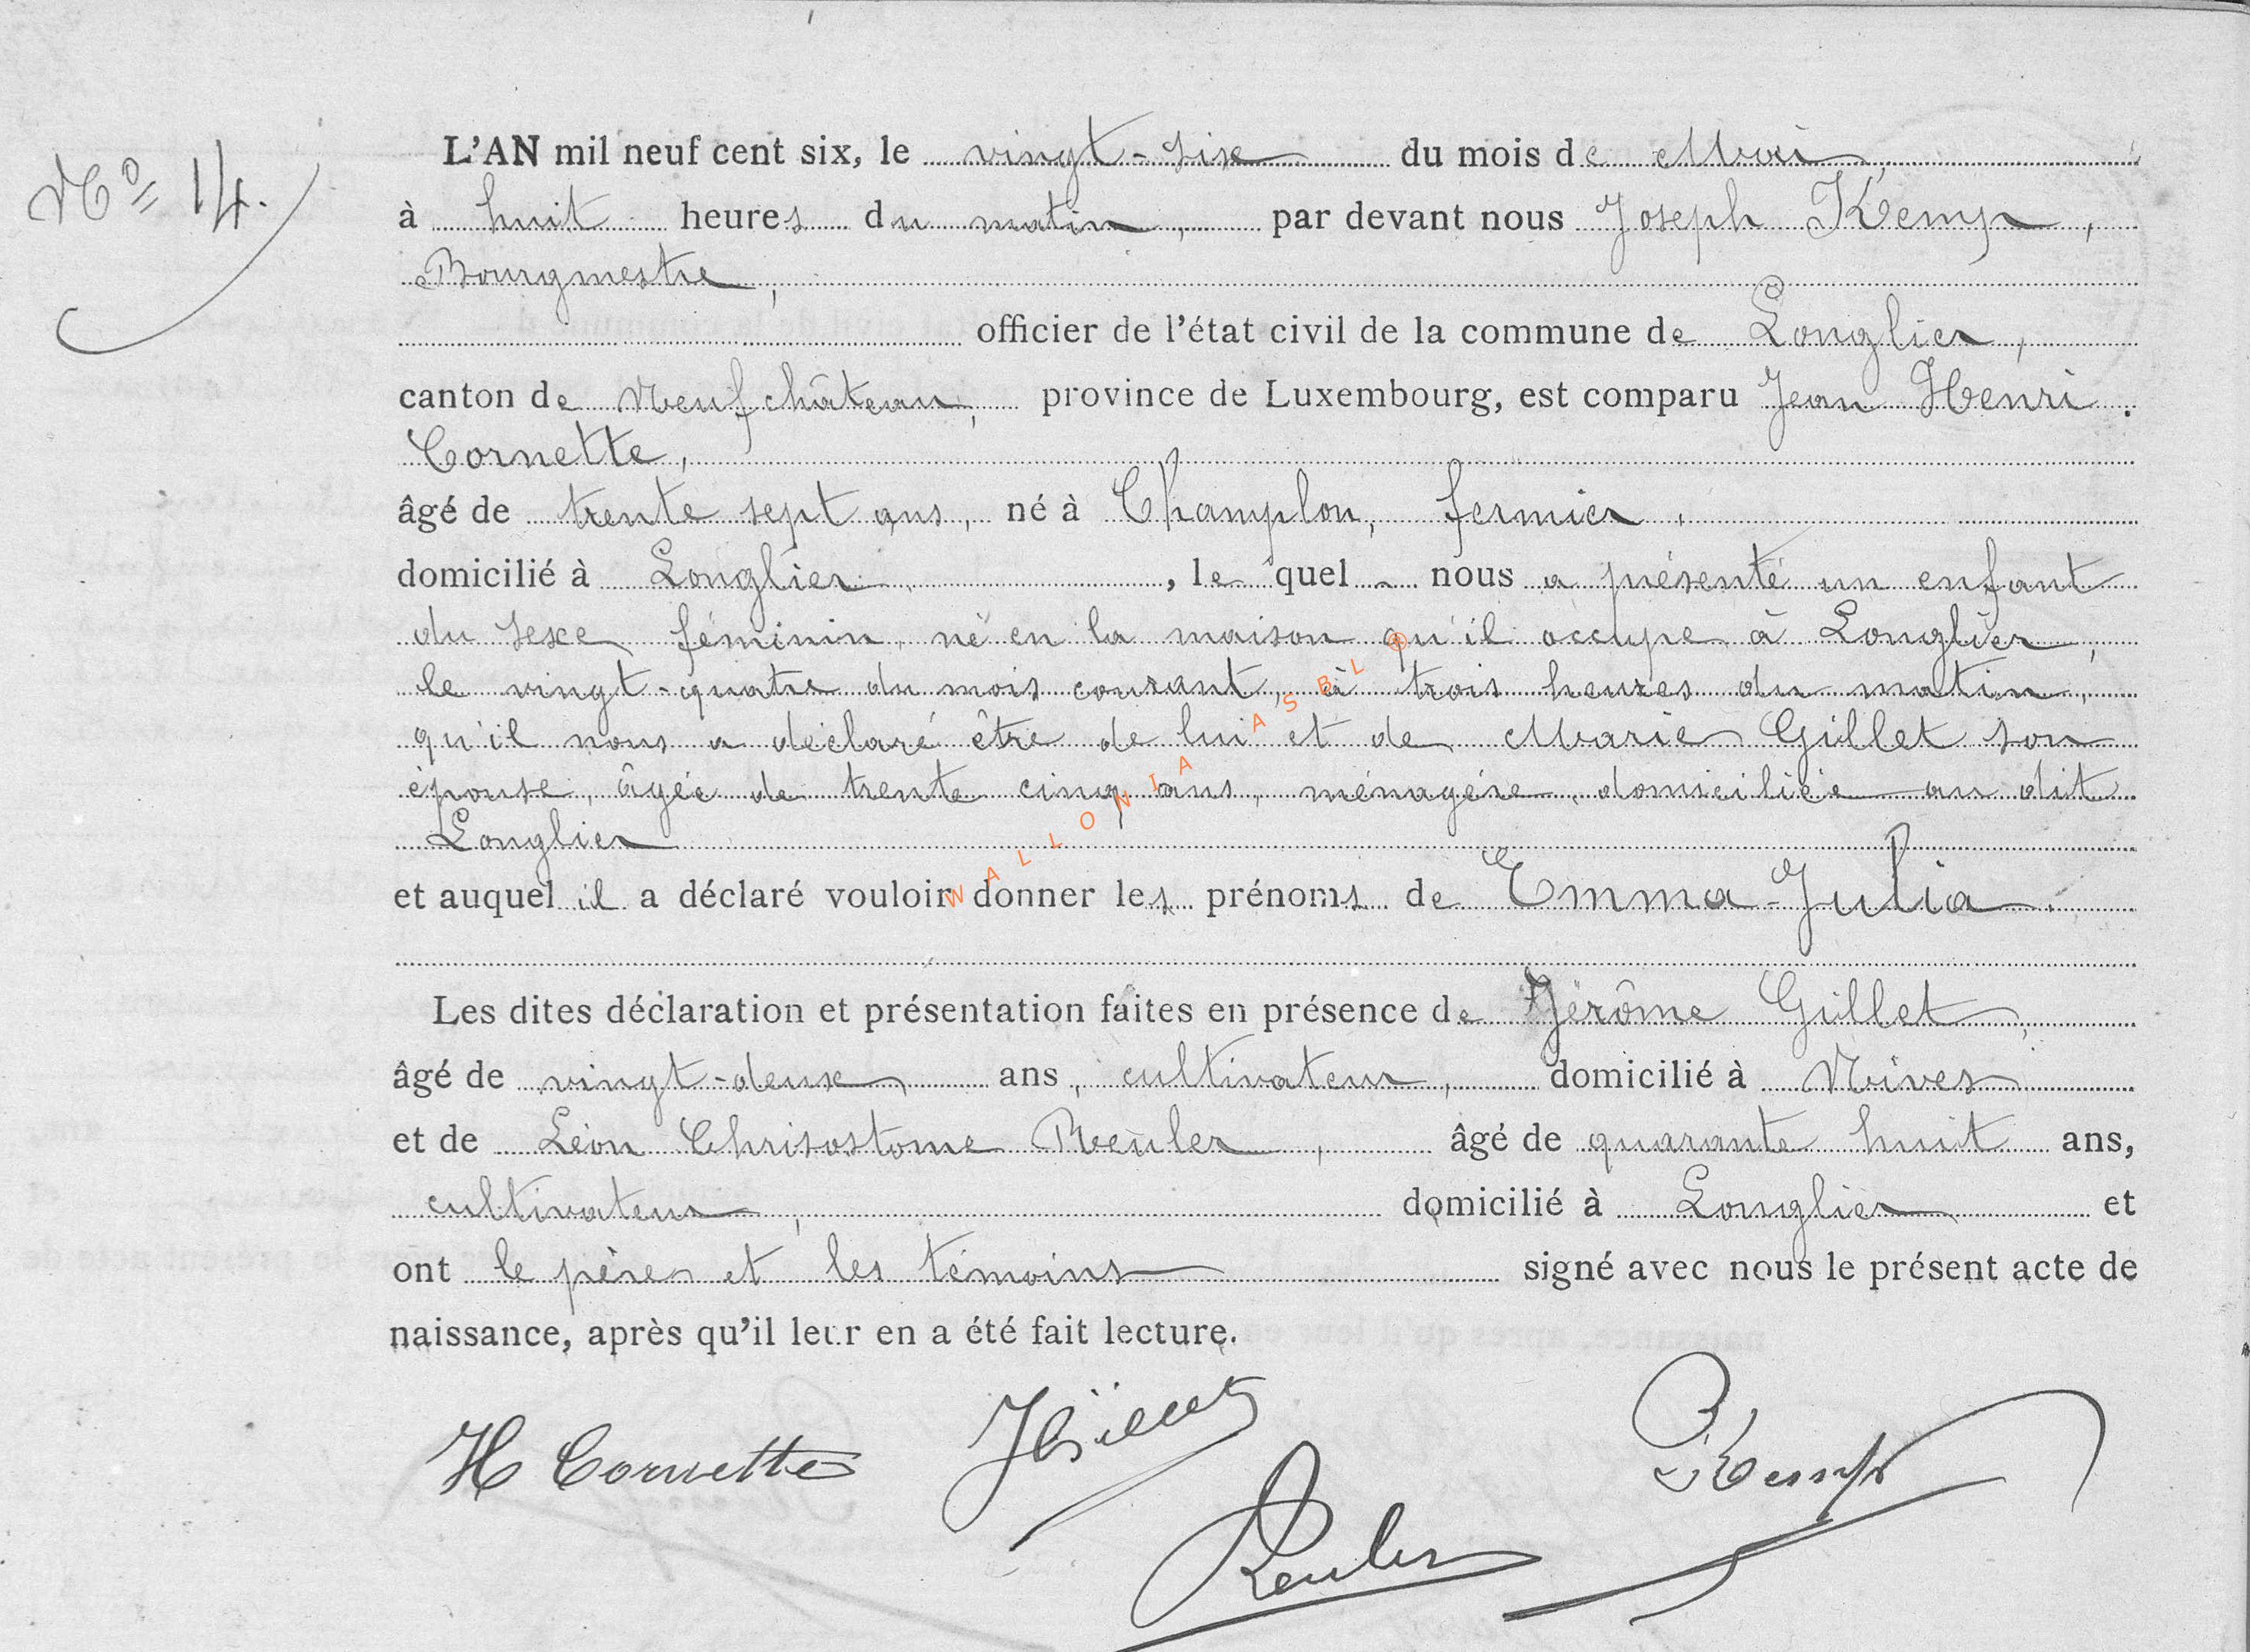 Nº 14.
L'AN mil neuf cent six, le vingt-six du mois de Mai,
à huit heures du matin, par devant nous Joseph Kemp,
Bourgmestre,
officier de l'état civil de la commune de Longlier,
canton de Neufchâteau, province de Luxembourg, est comparu Jean Henri
Cornette,
âgé de trente sept ans, né à Champlon, fermier,
domicilié à Longlier, le quel nous a présenté un enfant
du sexe féminin, né en la maison qu'il occupe à Longlier,
le vingt-quatre du mois courant, à trois heures du matin,
qu'il nous a déclaré être de lui et de Marie Gillet son
épouse, âgée de trente cinq ans, ménagère, domiciliée au dit
Longlier
et auquel il a déclaré vouloir donner les prénoms de Emma-Julia.
Les dites déclaration et présentation faites en présence de Jérôme Gillet,
âgé de vingt-deux ans, cultivateur, domicilié à Nives
et de Léon Chrisostome Reuler, âgé de quarante huit ans,
cultivateur, domicilié à Longlier et
ont le père et les témoins signé avec nous le présent acte de
naissance, après qu'il leur en a été fait lecture.
H Cornette JGillet Kemp
Reuler
WALLONIA ASBL ®